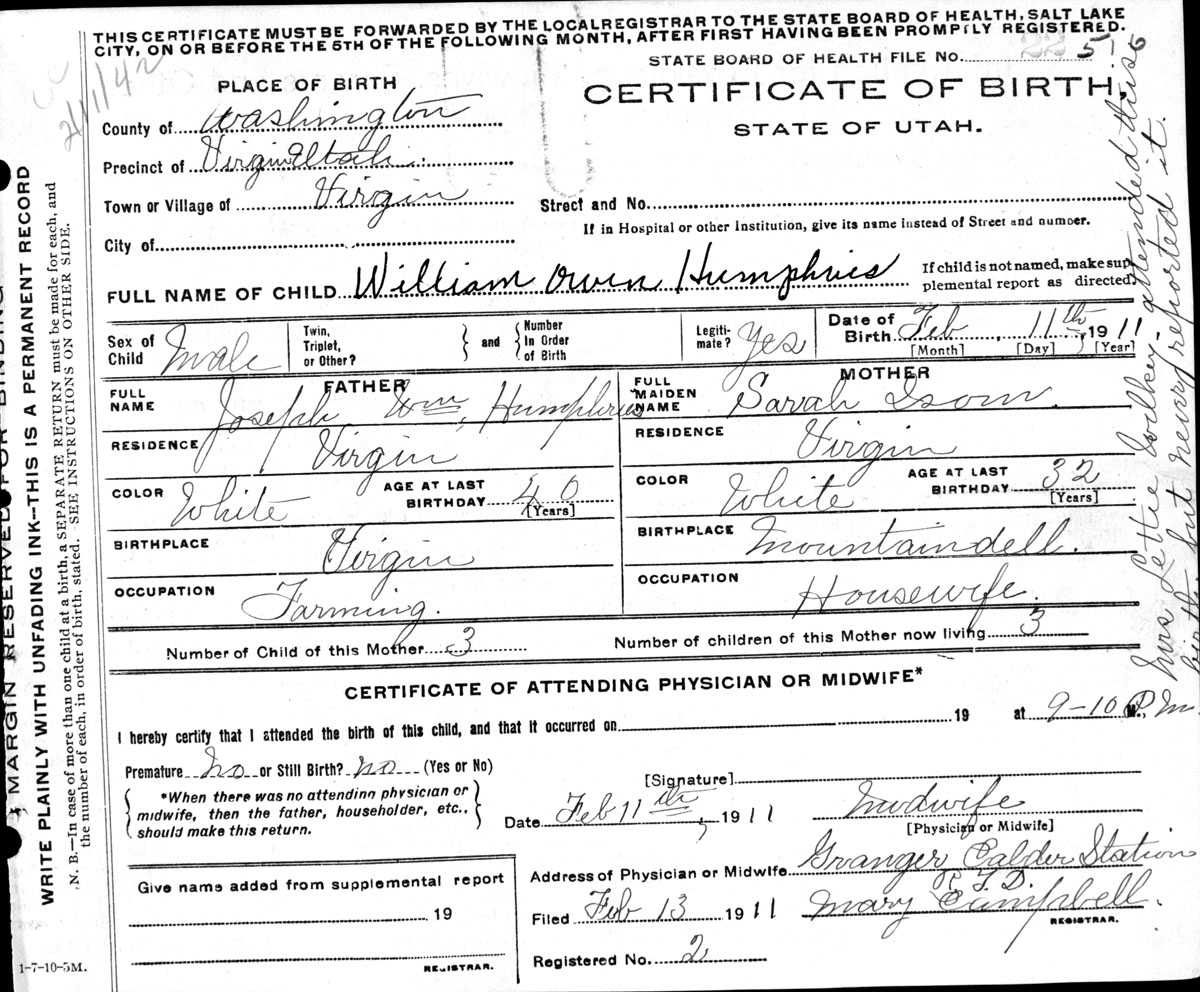 THIS CERTIFICATE MUST BE FORWARDED BY THE LOCAL REGISTRAR TO THE STATE BOARD OF HEALTH, SALT LAKE
CITY, ON OR BEFORE THE 5TH OF THE FOLLOWING MONTH, AFTER FIRST HAVING BEEN PROMPTLY REGISTERED.
STATE BOARD OF HEALTH FILE NO. 225
2/11/42
PLACE OF BIRTH
CERTIFICATE OF BIRTH,
STATE OF UTAH.
County of Washington
Precinct of Virgin Utah
Town or Village of Virgin
Street and No.
If in Hospital or other Institution, give its name instead of Street and number.
City of
FULL NAME OF CHILD William Owen Humphries
If child is not named, make sup-
plemental report as directed.
Sex of Child Male
Twin, Triplet, or Other?
and
Number In Order of Birth
Legiti-mate? Yes
Date of Birth Feb 11th, 1911
[Month] [Day] [Year]
FATHER
MOTHER
FULL NAME Joseph Wm, Humphries
FULL MAIDEN NAME Sarah Isom.
RESIDENCE Virgin
RESIDENCE Virgin
COLOR White AGE AT LAST BIRTHDAY 40 [Years]
COLOR White AGE AT LAST BIRTHDAY 32 [Years]
BIRTHPLACE Virgin
BIRTHPLACE Mountaindell.
OCCUPATION Farming.
OCCUPATION Housewife.
Number of Child of this Mother 3 Number of children of this Mother now living 3
CERTIFICATE OF ATTENDING PHYSICIAN OR MIDWIFE*
I hereby certify that I attended the birth of this child, and that it occurred on 19 at 9-10 P M.
Premature No or Still Birth? No (Yes or No)
[Signature]
*When there was no attending physician or
midwife, then the father, householder, etc.,
should make this return.
Date Feb 11th, 1911 Midwife
[Physician or Midwife]
Address of Physician or Midwife Granger Calder Station
R.F.D.
Give name added from supplemental report
19
REGISTRAR.
Filed Feb 13 1911 Mary Campbell.
REGISTRAR.
Registered No. 2
1-7-10-5M.
MARGIN RESERVED FOR BINDING
WRITE PLAINLY WITH UNFADING INK—THIS IS A PERMANENT RECORD
N. B.—In case of more than one child at a birth, a SEPARATE RETURN must be made for each, and
the number of each, in order of birth, stated. SEE INSTRUCTIONS ON OTHER SIDE.
Mrs Lettie Wilkey - attended this
birth but never reported it.